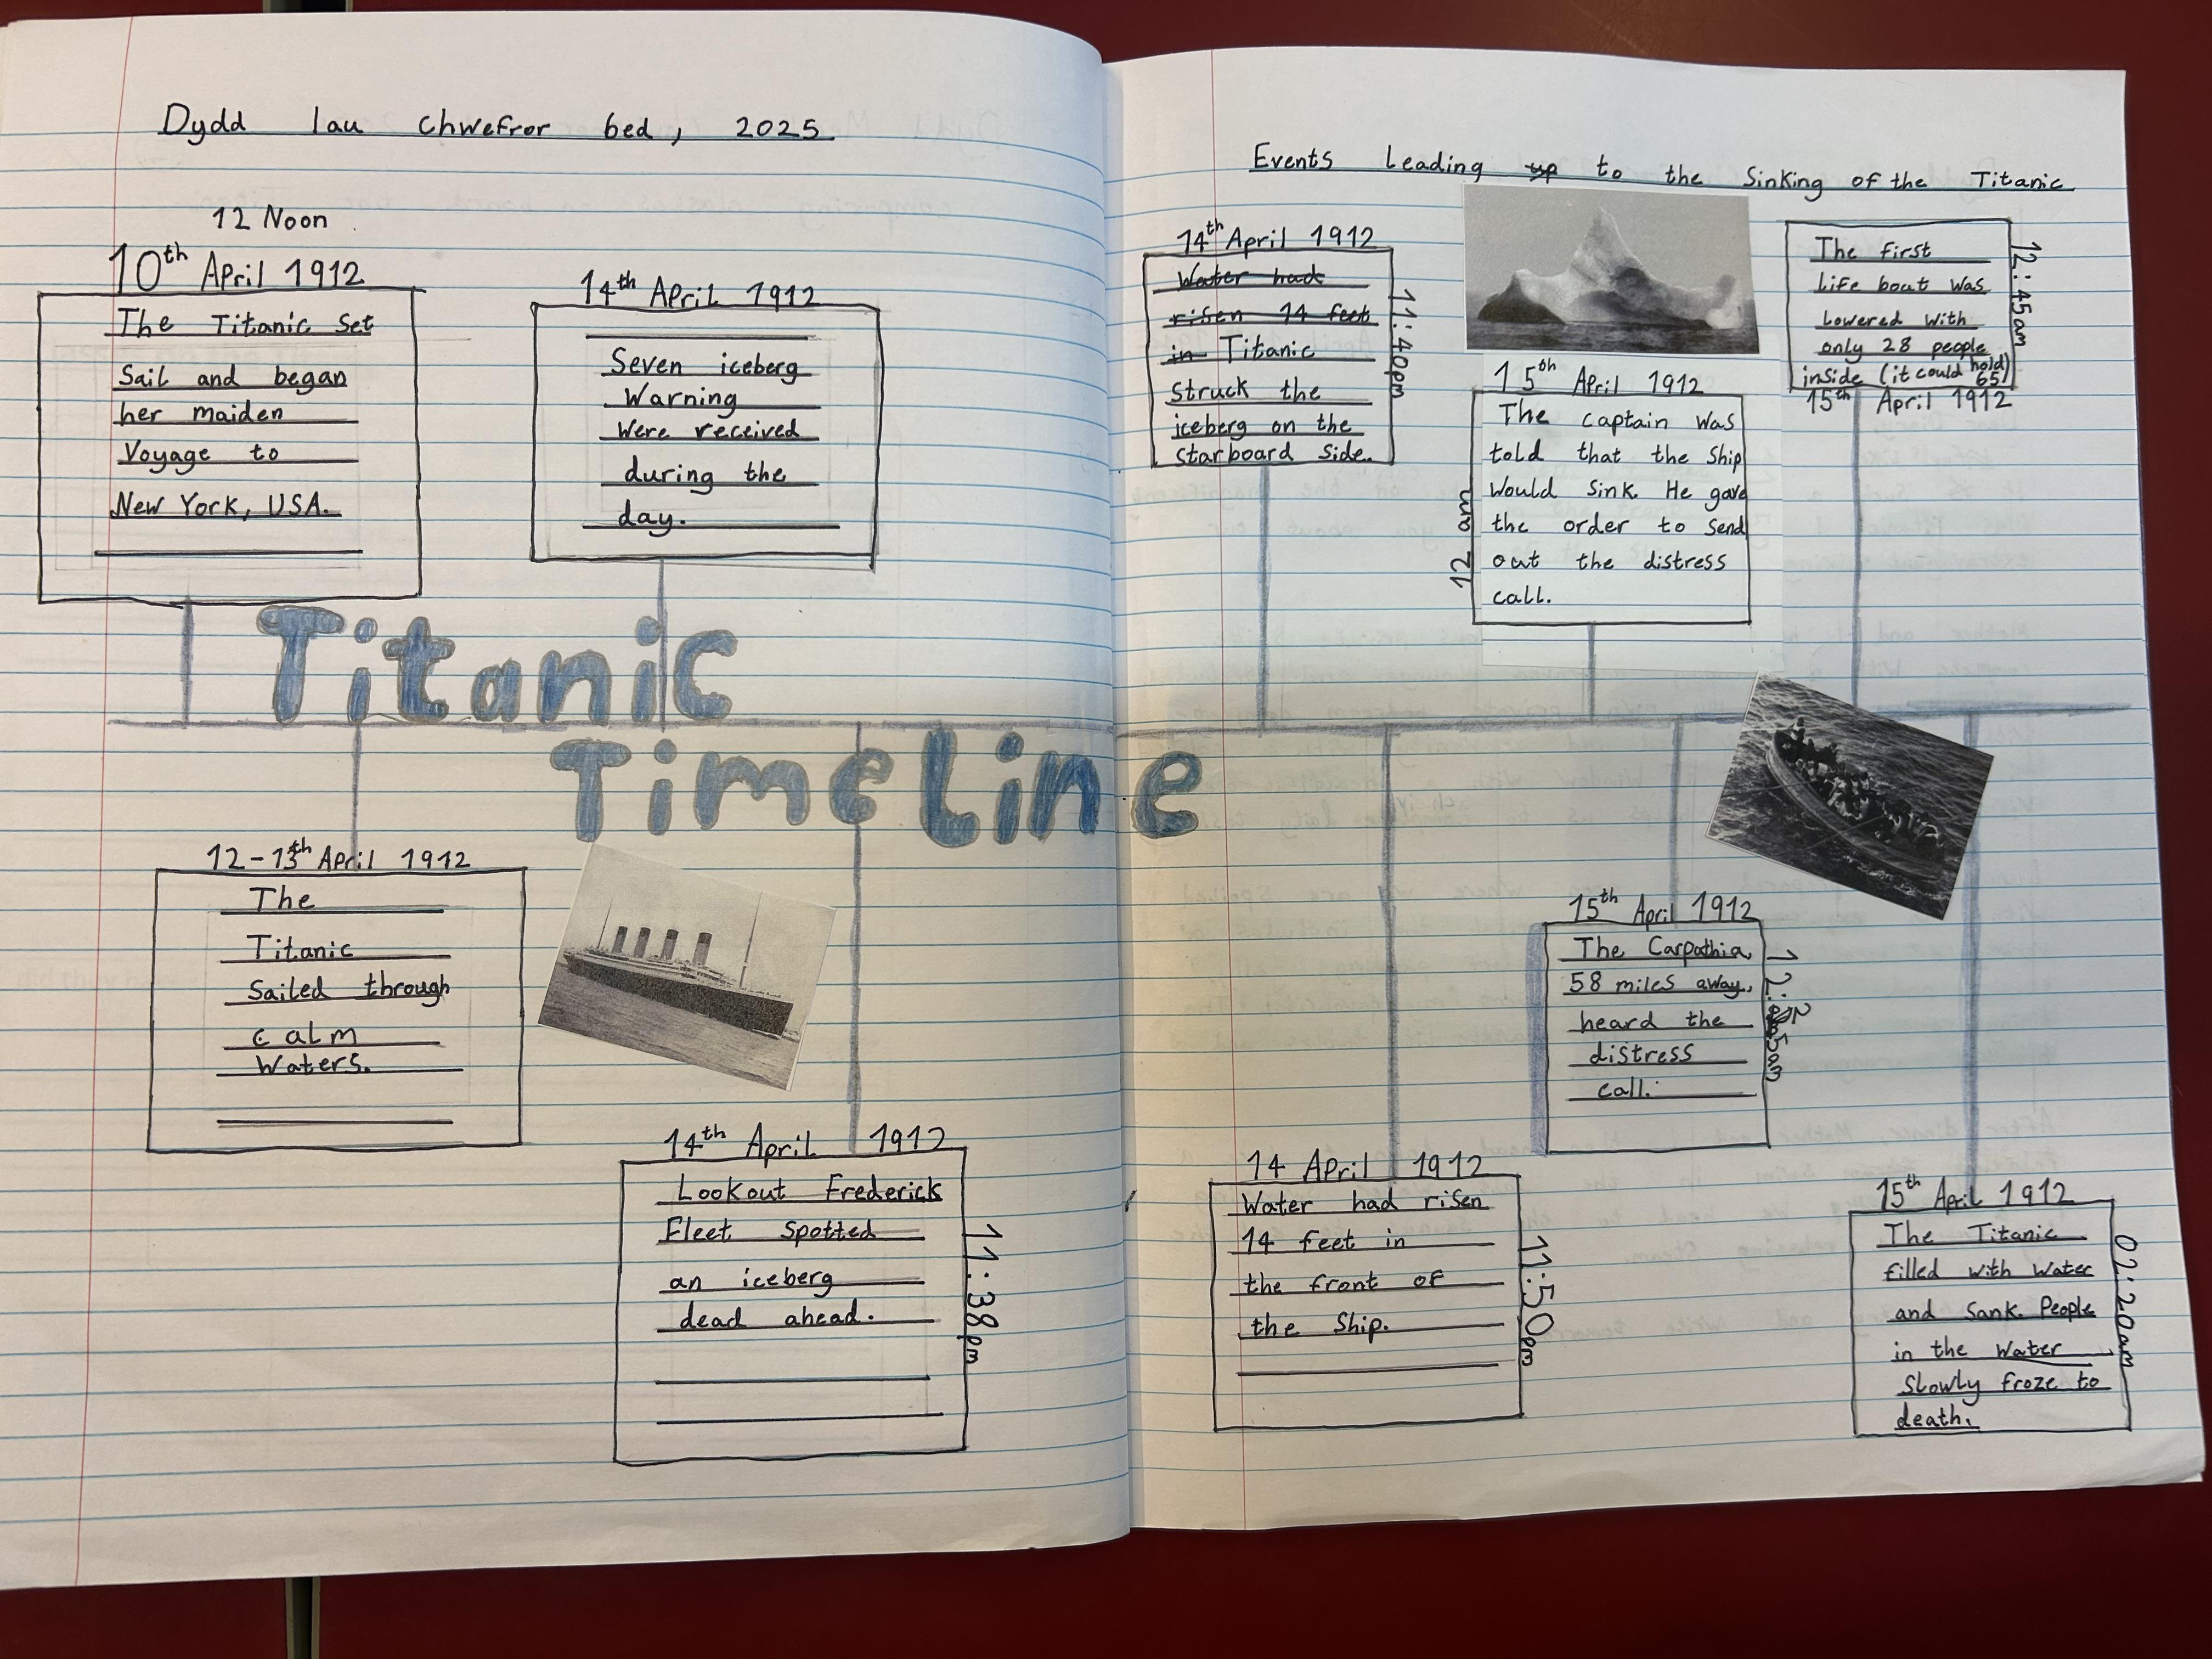 Dydd Iau Chwefror 6ed, 2025
12 Noon
10th April 1912
The Titanic set
Sail and began
her maiden
Voyage to
New York, USA.
14th April 1912
Seven iceberg
Warning
were received
during the
day.
Titanic
Timeline
12-13th April 1912
The
Titanic
Sailed through
calm
Waters.
14th April 1912
Lookout Frederick
Fleet Spotted
an iceberg
dead ahead.
11:38pm
Events leading up to the Sinking of the Titanic
14th April 1912
Water had
risen 14 feet
in Titanic
Struck the
iceberg on the
Starboard Side.
11:40pm
15th April 1912
The captain was
told that the Ship
would Sink. He gave
the order to send
out the distress
call.
12 am
The first
life boat was
lowered with
only 28 people
inside (it could hold
65)
12:45am
15th April 1912
14 April 1912
Water had risen
14 feet in
the front of
the Ship.
11:50pm
15th April 1912
The Carpathia,
58 miles away,
heard the
distress
call.
15th April 1912
The Titanic
filled with water
and Sank. People
in the water
Slowly froze to
death.
02:20am